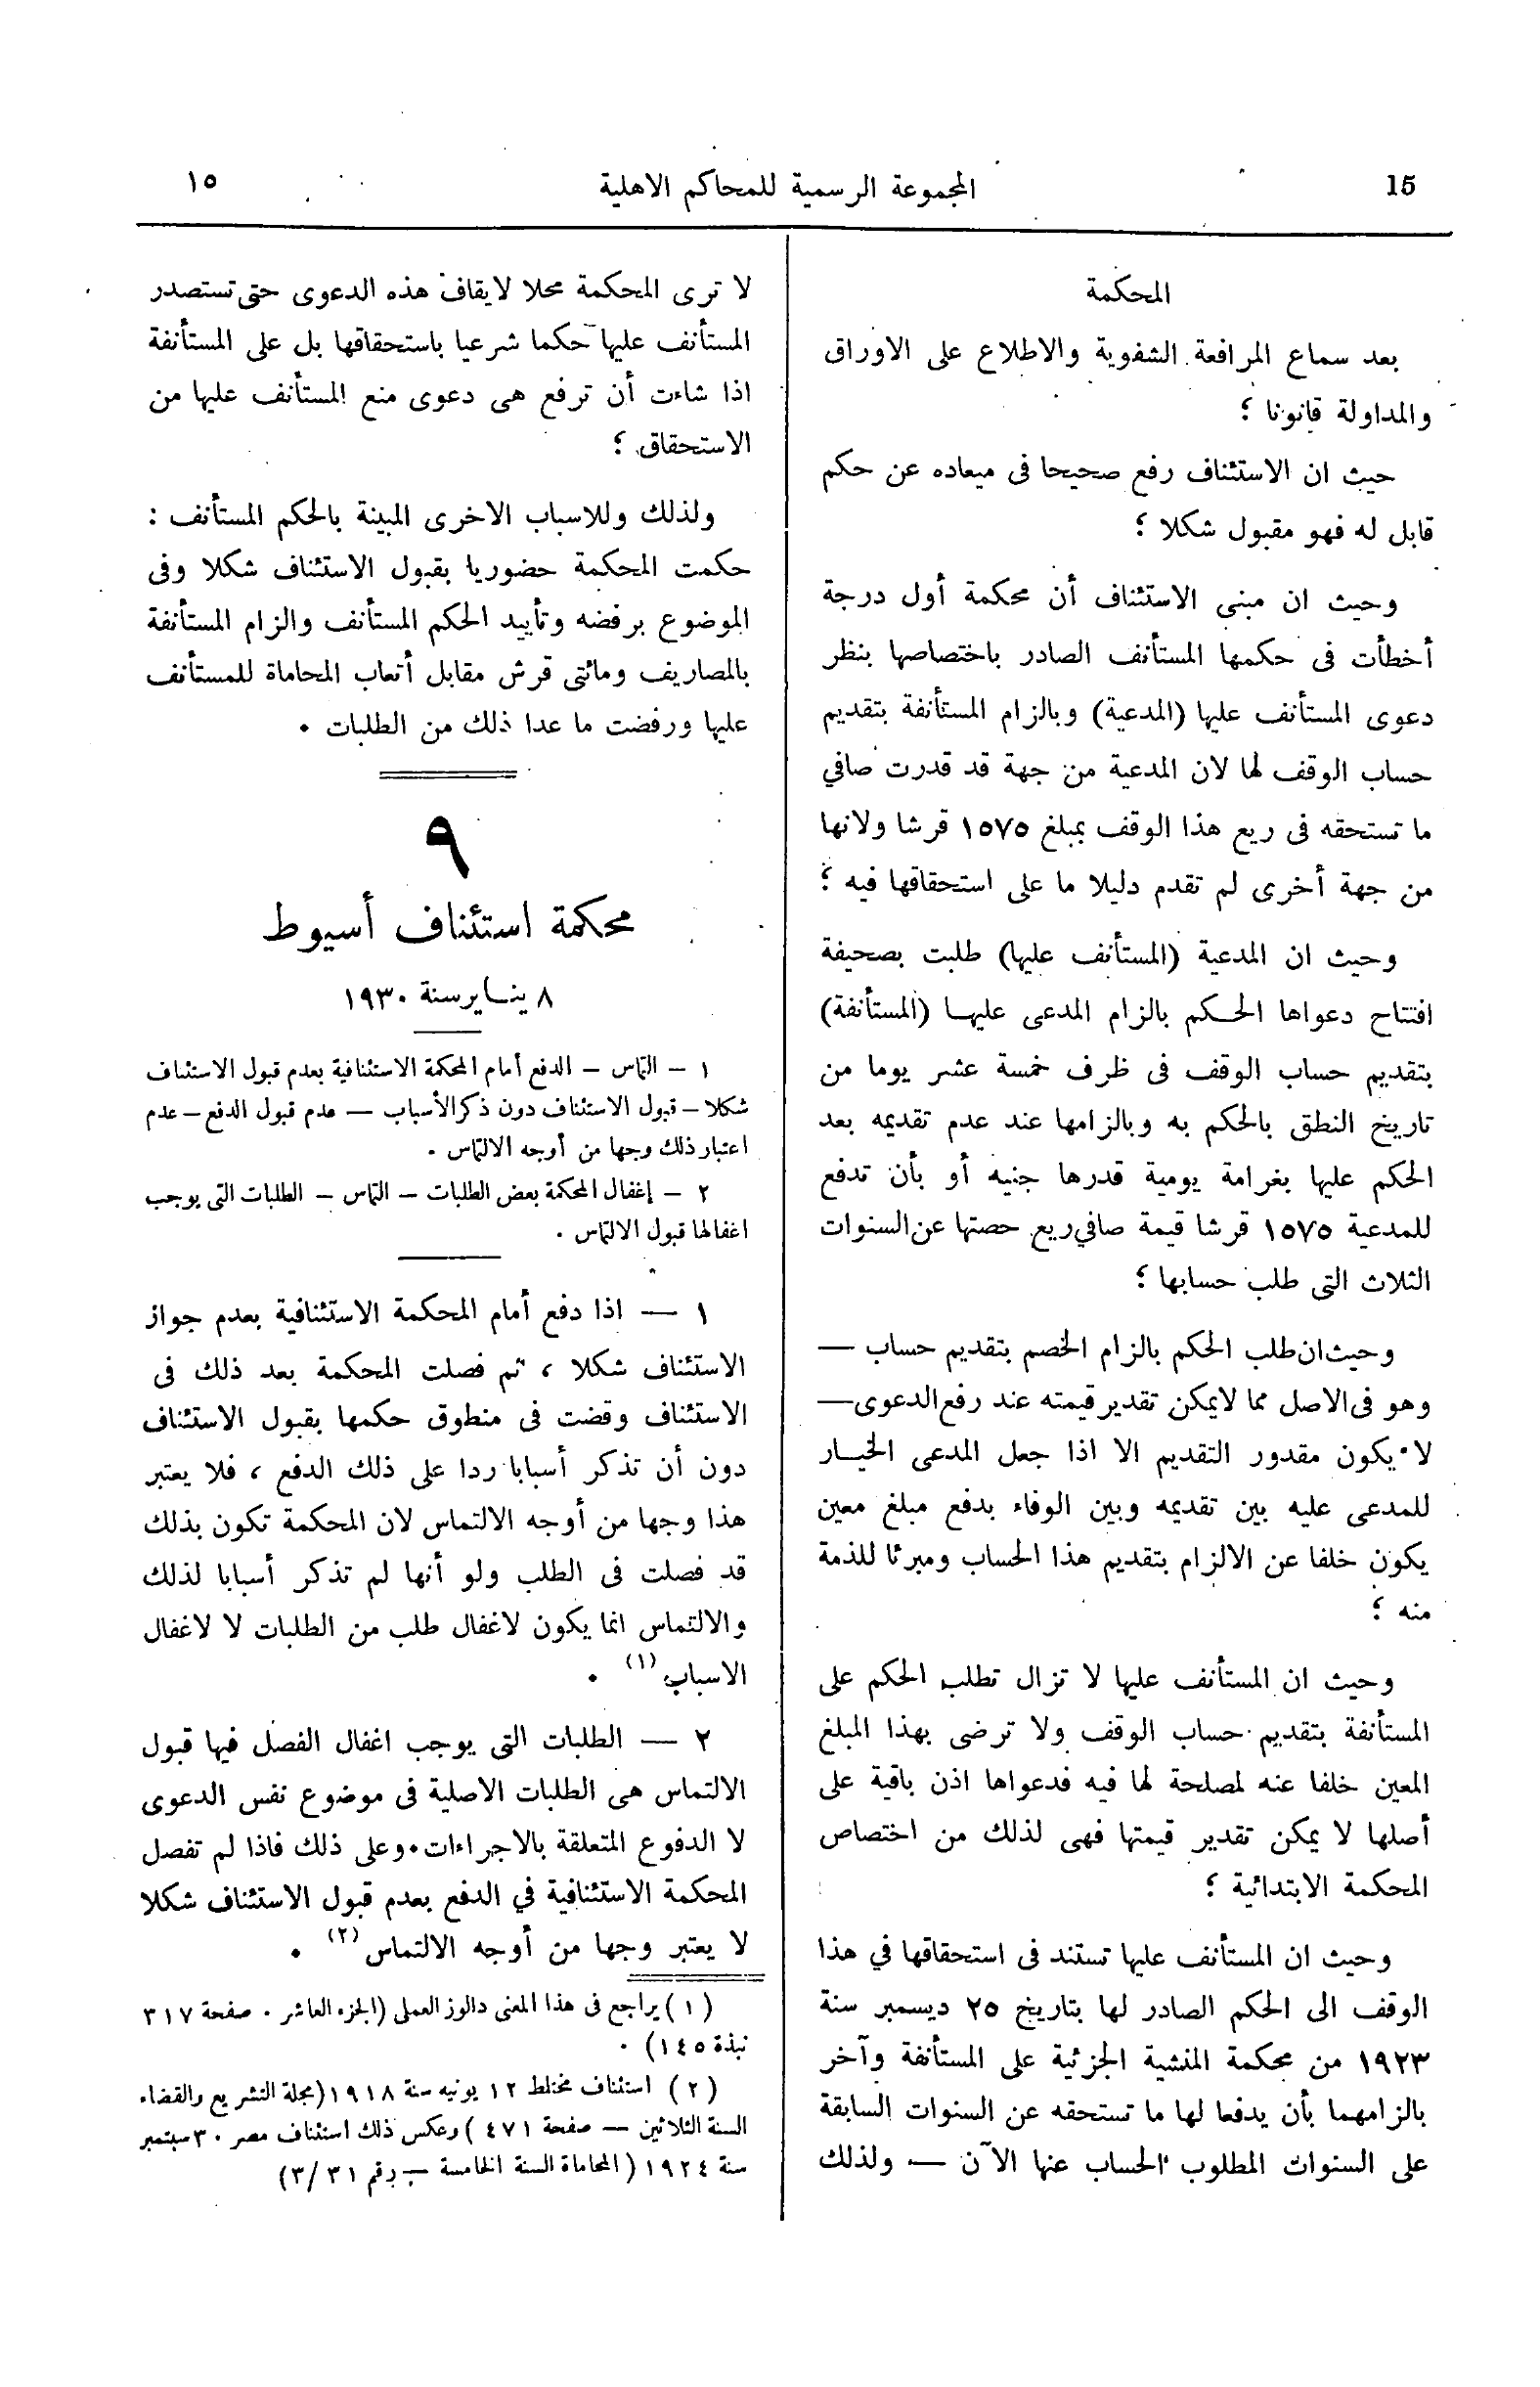 15
المجموعة الرسمية للمحاكم الاهلية
١٥
المحكمة
بعد سماع المرافعة الشفوية والاطلاع على الاوراق
والمداولة قانونا ؛
حيث ان الاستئناف رفع صحيحا فى ميعاده عن حكم
قابل له فهو مقبول شكلا ؛
وحيث ان مبنى الاستئناف أن محكمة أول درجة
أخطأت فى حكمها المستأنف الصادر باختصاصها بنظر
دعوى المستأنف عليها (المدعية) وبالزام المستأنفة بتقديم
حساب الوقف لها لان المدعية من جهة قد قدرت صافي
ما تستحقه فى ريع هذا الوقف بمبلغ ١٥٧٥ قرشا ولانها
من جهة أخرى لم تقدم دليلا ما على استحقاقها فيه ؛
وحيث ان المدعية (المستأنف عليها) طلبت بصحيفة
افتتاح دعواها الحكم بالزام المدعى عليها (المستأنفة)
بتقديم حساب الوقف فى ظرف خمسة عشر يوما من
تاريخ النطق بالحكم به وبالزامها عند عدم تقديمه بعد
الحكم عليها بغرامة يومية قدرها جنيه أو بأن تدفع
للمدعية ١٥٧٥ قرشا قيمة صافي ريع حصتها عن السنوات
الثلاث التى طلب حسابها ؛
وحيث ان طلب الحكم بالزام الخصم بتقديم حساب —
وهو فى الاصل مما لا يمكن تقدير قيمته عند رفع الدعوى —
لا يكون مقدور التقديم الا اذا جعل المدعى الخيار
للمدعى عليه بين تقديمه وبين الوفاء بدفع مبلغ معين
يكون خلفا عن الالزام بتقديم هذا الحساب ومبرئا للذمة
منه ؛
وحيث ان المستأنف عليها لا تزال تطلب الحكم على
المستأنفة بتقديم حساب الوقف ولا ترضى بهذا المبلغ
المعين خلفا عنه لمصلحة لها فيه فدعواها اذن باقية على
أصلها لا يمكن تقدير قيمتها فهى لذلك من اختصاص
المحكمة الابتدائية ؛
وحيث ان المستأنف عليها تستند فى استحقاقها في هذا
الوقف الى الحكم الصادر لها بتاريخ ٢٥ ديسمبر سنة
١٩٢٣ من محكمة المنشية الجزئية على المستأنفة وآخر
بالزامهما بأن يدفعا لها ما تستحقه عن السنوات السابقة
على السنوات المطلوب الحساب عنها الآن — ولذلك
لا ترى المحكمة محلا لايقاف هذه الدعوى حتى تستصدر
المستأنف عليها حكما شرعيا باستحقاقها بل على المستأنفة
اذا شاءت أن ترفع هى دعوى منع المستأنف عليها من
الاستحقاق ؛
ولذلك وللاسباب الاخرى المبينة بالحكم المستأنف :
حكمت المحكمة حضوريا بقبول الاستئناف شكلا وفى
الموضوع برفضه وتأييد الحكم المستأنف والزام المستأنفة
بالمصاريف ومائتى قرش مقابل أتعاب المحاماة للمستأنف
عليها ورفضت ما عدا ذلك من الطلبات ٠
٩
محكمة استئناف أسيوط
٨ يناير سنة ١٩٣٠
١ – التماس – الدفع أمام المحكمة الاستئنافية بعدم قبول الاستئناف
شكلا – قبول الاستئناف دون ذكر الأسباب – عدم قبول الدفع – عدم
اعتبار ذلك وجها من أوجه الالتماس ٠
٢ – إغفال المحكمة بعض الطلبات – التماس – الطلبات التى يوجب
اغفالها قبول الالتماس ٠
١ — اذا دفع أمام المحكمة الاستئنافية بعدم جواز
الاستئناف شكلا ، ثم فصلت المحكمة بعد ذلك فى
الاستئناف وقضت فى منطوق حكمها بقبول الاستئناف
دون أن تذكر أسبابا ردا على ذلك الدفع ، فلا يعتبر
هذا وجها من أوجه الالتماس لان المحكمة تكون بذلك
قد فصلت فى الطلب ولو أنها لم تذكر أسبابا لذلك
والالتماس انما يكون لاغفال طلب من الطلبات لا لاغفال
الاسباب (١) ٠
٢ — الطلبات التى يوجب اغفال الفصل فيها قبول
الالتماس هى الطلبات الاصلية فى موضوع نفس الدعوى
لا الدفوع المتعلقة بالاجراءات٠وعلى ذلك فاذا لم تفصل
المحكمة الاستئنافية في الدفع بعدم قبول الاستئناف شكلا
لا يعتبر وجها من أوجه الالتماس (٢) ٠
(١) يراجع فى هذا المعنى دالوز العملى (الجزء العاشر ٠ صفحة ٣١٧
نبذة ١٤٥) ٠
(٢) استئناف مختلط ١٢ يونيه سنة ١٩١٨ (مجلة التشريع والقضاء
السنة الثلاثين — صفحة ٤٧١) وعكس ذلك استئناف مصر ٣٠ سبتمبر
سنة ١٩٢٤ (المحاماة السنة الخامسة — رقم ٣/٣١)